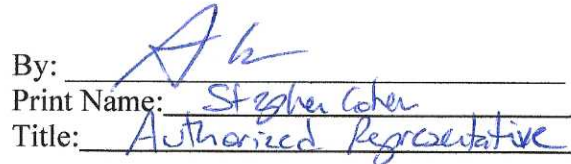 By:
Print Name: Stephen Cohen
Title: Authorized Representative